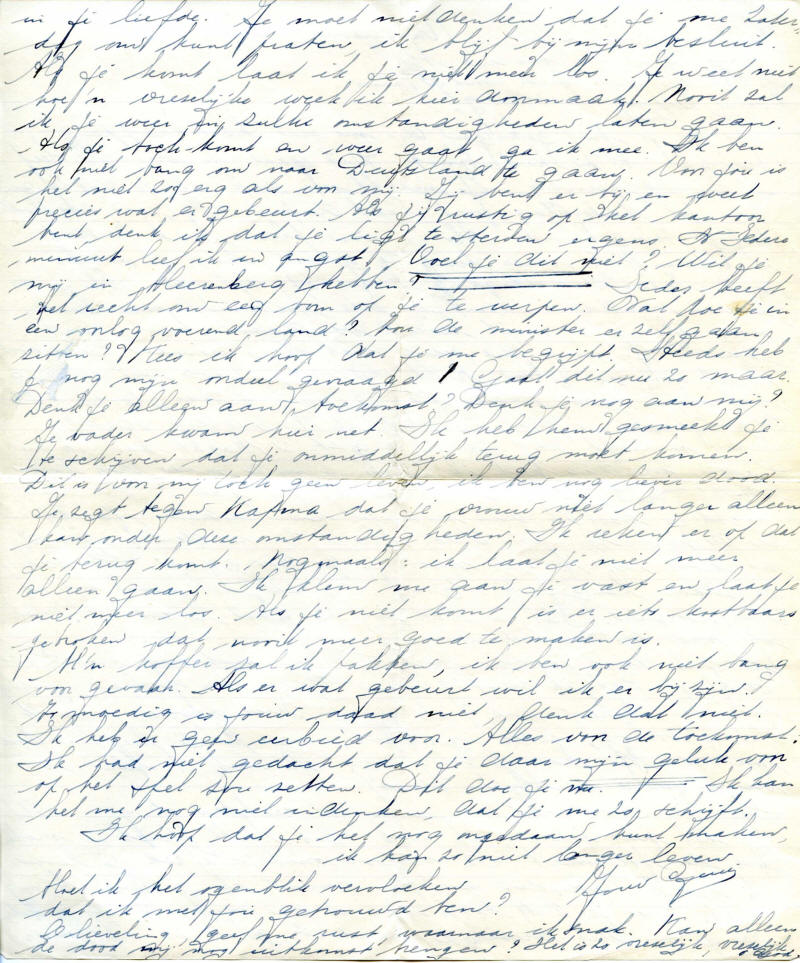 in je liefde. Je moet niet denken dat je me Zater-
dag om kunt praten, ik blijf bij mijn besluit.
Als je komt laat ik je niet meer los. Je weet niet
hoe'n vreselijke week ik hier doormaak. Nooit zal
ik je weer in zulke omstandigheden laten gaan.
Als je toch komt en weer gaat ga ik mee. Ik ben
ook niet bang om naar Duitsland te gaan. Voor jou is
het niet zo erg als voor mij. Jij bent er bij en weet
precies wat er gebeurt. Als jij rustig op het kantoor
bent, denk ik dat je ligt te sterven ergens. Iedere
minuut leef ik in angst. Voel je dit niet? Wil je
mij in Heerenberg hebben? Ieder heeft
het recht om een bom op je te werpen. Wat doe je in
een oorlog voerend land? Zou de minister er zelf gaan
zitten? Kees ik hoop dat je me begrijpt. Steeds heb
je nog mijn ordeel gevraagd! Gaat dit nu zo maar.
Denk je alleen aan toekomst? Denk je nog aan mij?
Je vader kwam hier net. Ik heb hem gesmeekt je
te schrijven dat je onmiddellijk terug moet komen.
Dit is voor mij toch geen leven, ik ben nog liever dood.
Je zegt tegen dat je vrouw niet langer alleen
kan onder deze omstandigheden. Ik reken er op dat
je terug komt. Nogmaals: ik laat je niet meer
alleen gaan. Ik klem me aan je vast en laat je
niet meer los. Als je niet komt is er iets kostbaars
gebroken dat nooit meer goed te maken is.
M'n koffer zal ik pakken, ik ben ook niet bang
voor gevaar. Als er wat gebeurt wil ik er bij zijn.
Zo moedig is jouw daad niet denk dat niet.
Ik heb er geen eerbied voor. Alles voor de toekomst.
Ik had niet gedacht dat je daar mijn geluk voor
op het spel zou zetten. Dit doe je nu. Ik kan
het me nog niet indenken, dat je me zo schrijft.
Ik hoop dat je het nog ongedaan kunt maken,
ik kan zo niet langer leven
Jouw
Moet ik het ogenblik vervloeken
dat ik met jou getrouwd ben?
O lieveling geef me rust waarnaar ik snak. Kan alleen
de dood mij nog uitkomst brengen? Het is zo vreselijk, vreselijk